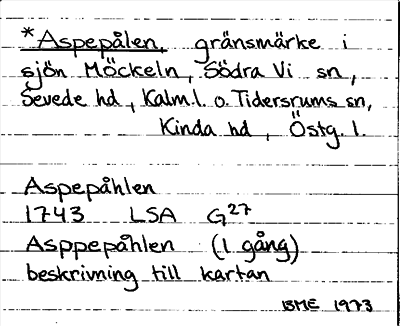 *Aspepålen, gränsmärke i
sjön Möckeln, Södra Vi sn,
Sevede hd, Kalm.l. o. Tidersrums sn,
Kinda hd, Östg. l.
Aspepåhlen
1743 LSA G27
Asppepåhlen (1 gång)
beskrivning till kartan
BME 1973